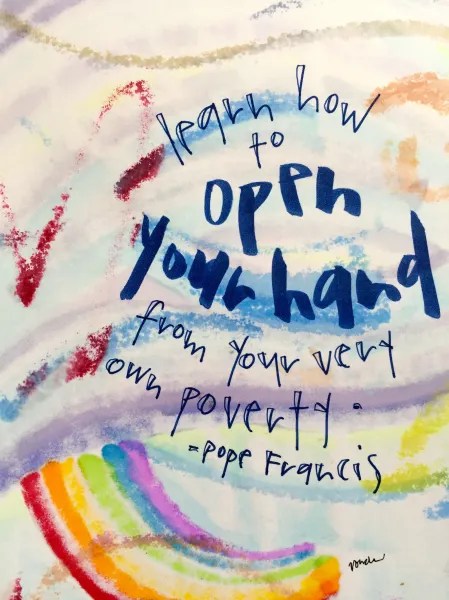 learn how
to
open
your hand
from your very
own poverty.
-pope Francis